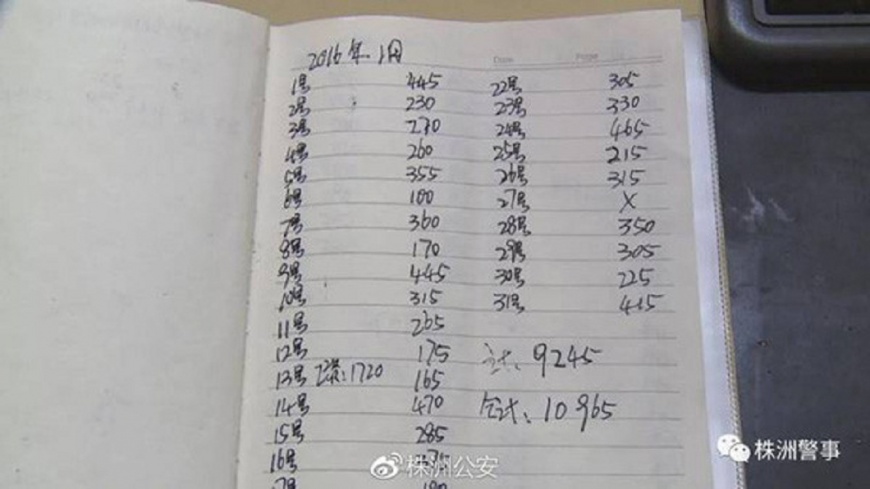 2016年1月
Date
Page
1号 445
2号 230
3号 270
4号 260
5号 355
6号 100
7号 360
8号 170
9号 445
10号 315
11号 265
12号 175
13号 1720 165
14号 470
15号 285
16号
17号
22号 305
23号 330
24号 465
25号 215
26号 315
27号 X
28号 350
29号 305
30号 225
31号 415
9245
合计:10965
株洲公安
株洲警事